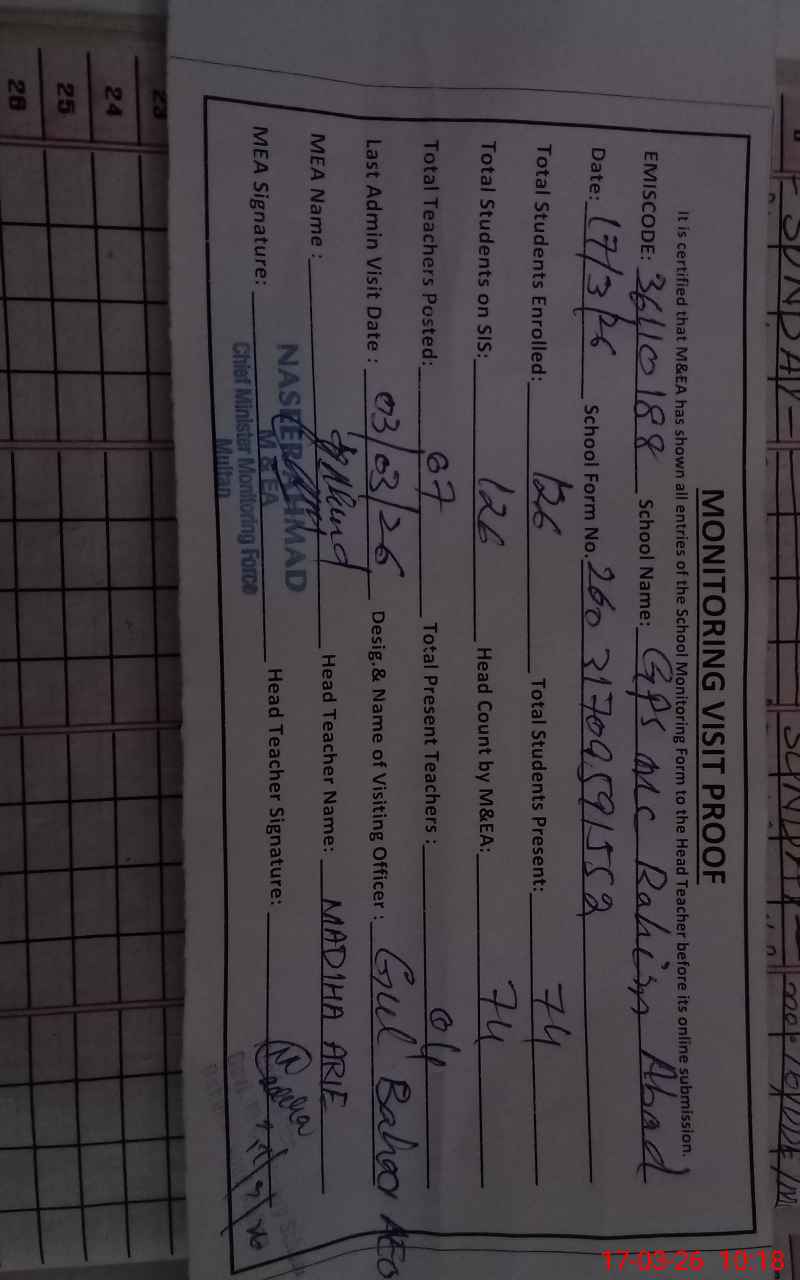 MONITORING VISIT PROOF
It is certified that M&EA has shown all entries of the School Monitoring Form to the Head Teacher before its online submission.
EMISCODE: 36110188 School Name: GPS MC Rahim Abad
Date: 17/3/26 School Form No. 26031709591552
Total Students Enrolled: 126 Total Students Present: 74
Total Students on SIS: 126 Head Count by M&EA: 74
Total Teachers Posted: 07 Total Present Teachers : 04
Last Admin Visit Date : 03/03/26 Desig.& Name of Visiting Officer : Gul Bahar AEO
MEA Name : Head Teacher Name: MADIHA ARIF
MEA Signature: Head Teacher Signature:
NASEER AHMAD
M & EA
Chief Minister Monitoring Force
Multan
23
24
25
26
SUNDAY
SUNDAY
17-03-26 10:18